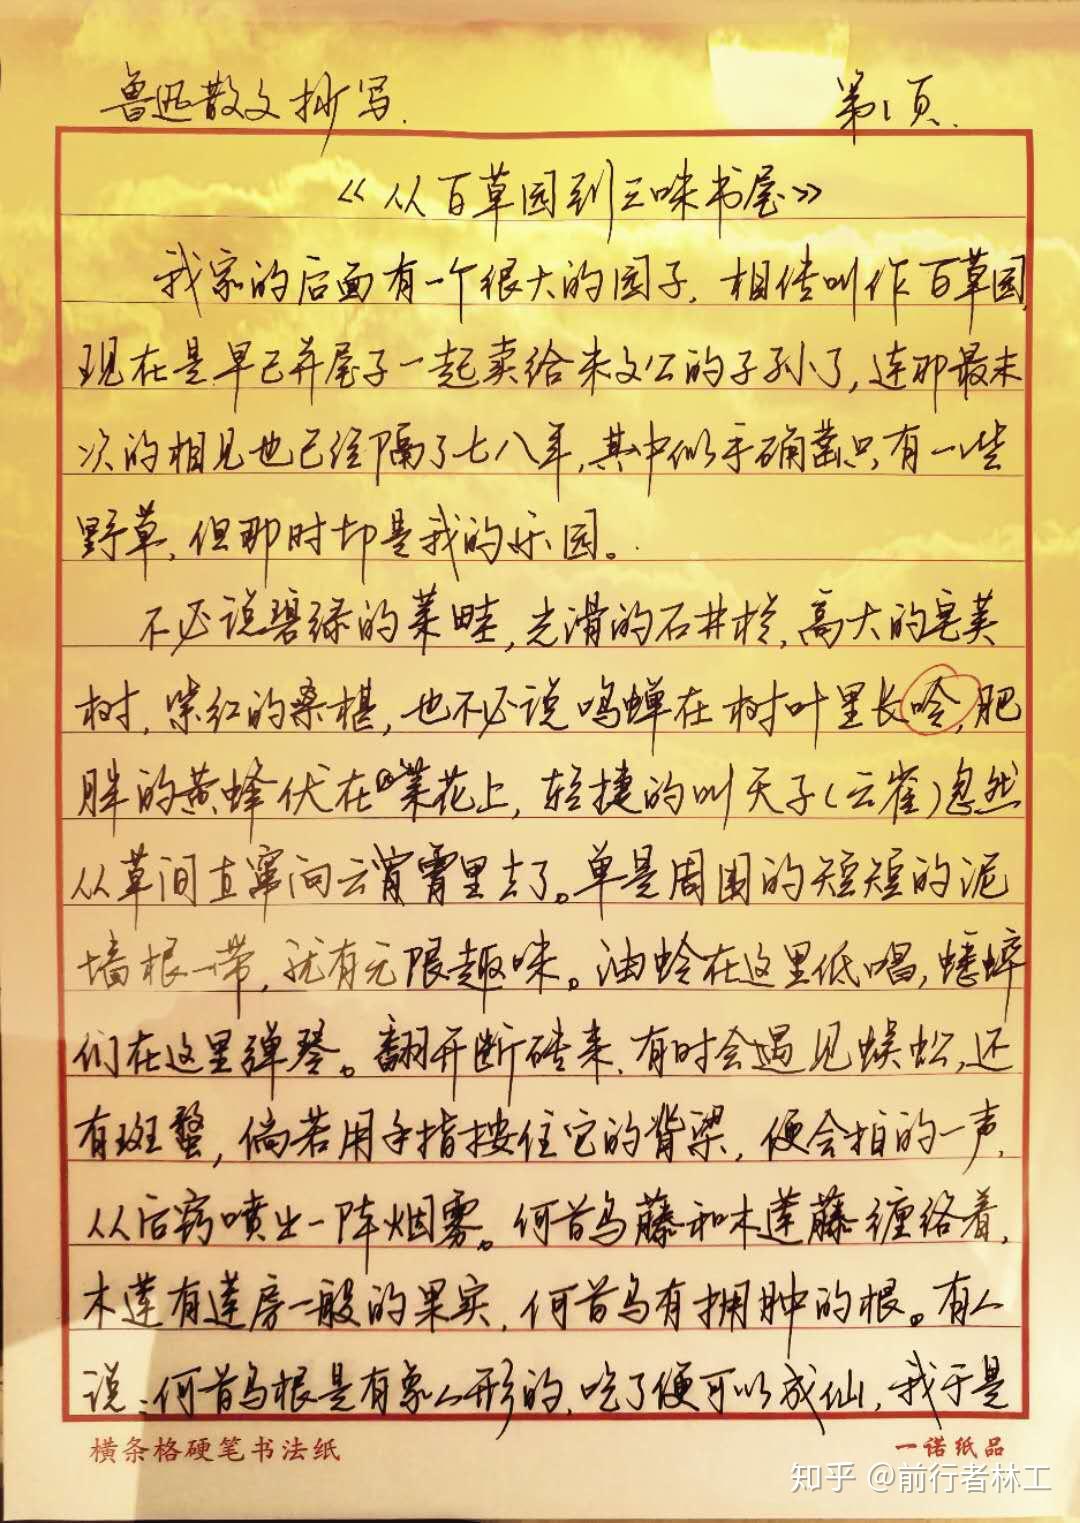 鲁迅散文抄写. 第1页.
《从百草园到三味书屋》
我家的后面有一个很大的园子,相传叫作百草园,
现在是早已并屋子一起卖给朱文公的子孙了,连那最末
次的相见也已经隔了七八年,其中似乎确凿只有一些
野草,但那时却是我的乐园。
不必说碧绿的菜畦,光滑的石井栏,高大的皂荚
树,紫红的桑椹,也不必说鸣蝉在树叶里长吟,肥
胖的黄蜂伏在菜花上,轻捷的叫天子(云雀)忽然
从草间直窜向云霄里去了。单是周围的短短的泥
墙根一带,就有无限趣味。油蛉在这里低唱,蟋蟀
们在这里弹琴。翻开断砖来,有时会遇见蜈蚣,还
有斑蝥,倘若用手指按住它的脊梁,便会拍的一声,
从后窍喷出一阵烟雾。何首乌藤和木莲藤缠络着,
木莲有莲房一般的果实,何首乌有拥肿的根。有人
说:何首乌根是有象人形的,吃了便可以成仙,我于是
横条格硬笔书法纸 一诺纸品
知乎 @前行者林工